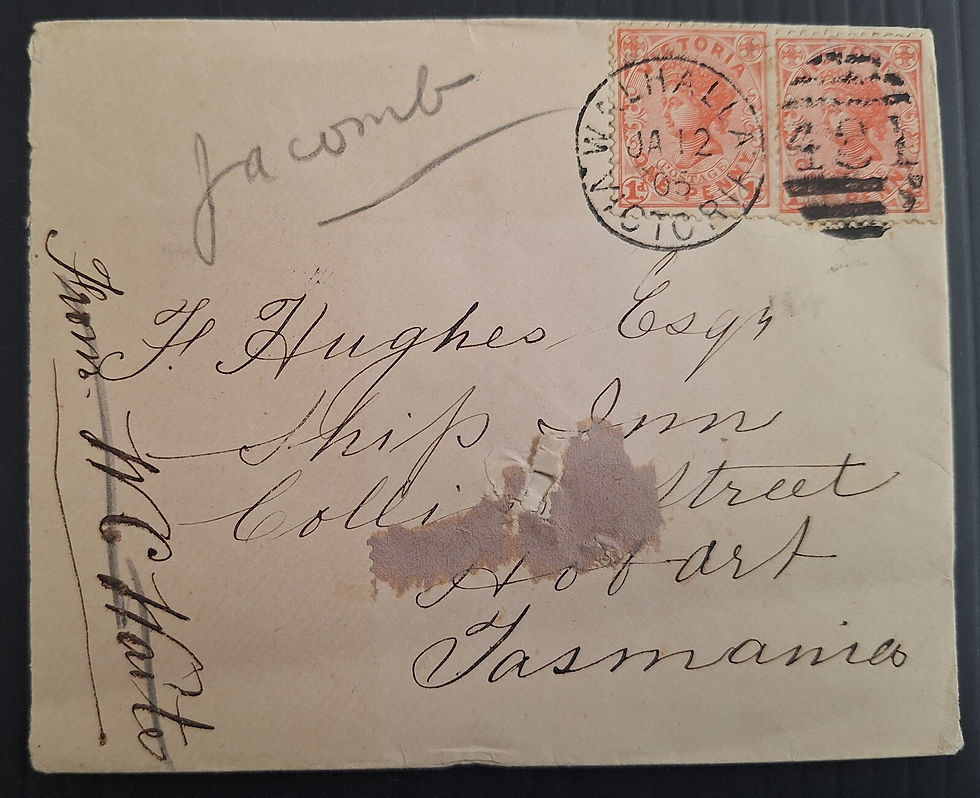 Jacomb
VICTORIA
POSTAGE
ONE PENNY
1d
WALHALLA
JA 12
05
VICTORIA
F. Hughes Esqr
Ship Inn
Colli Street
Hobart
Tasmania
From W